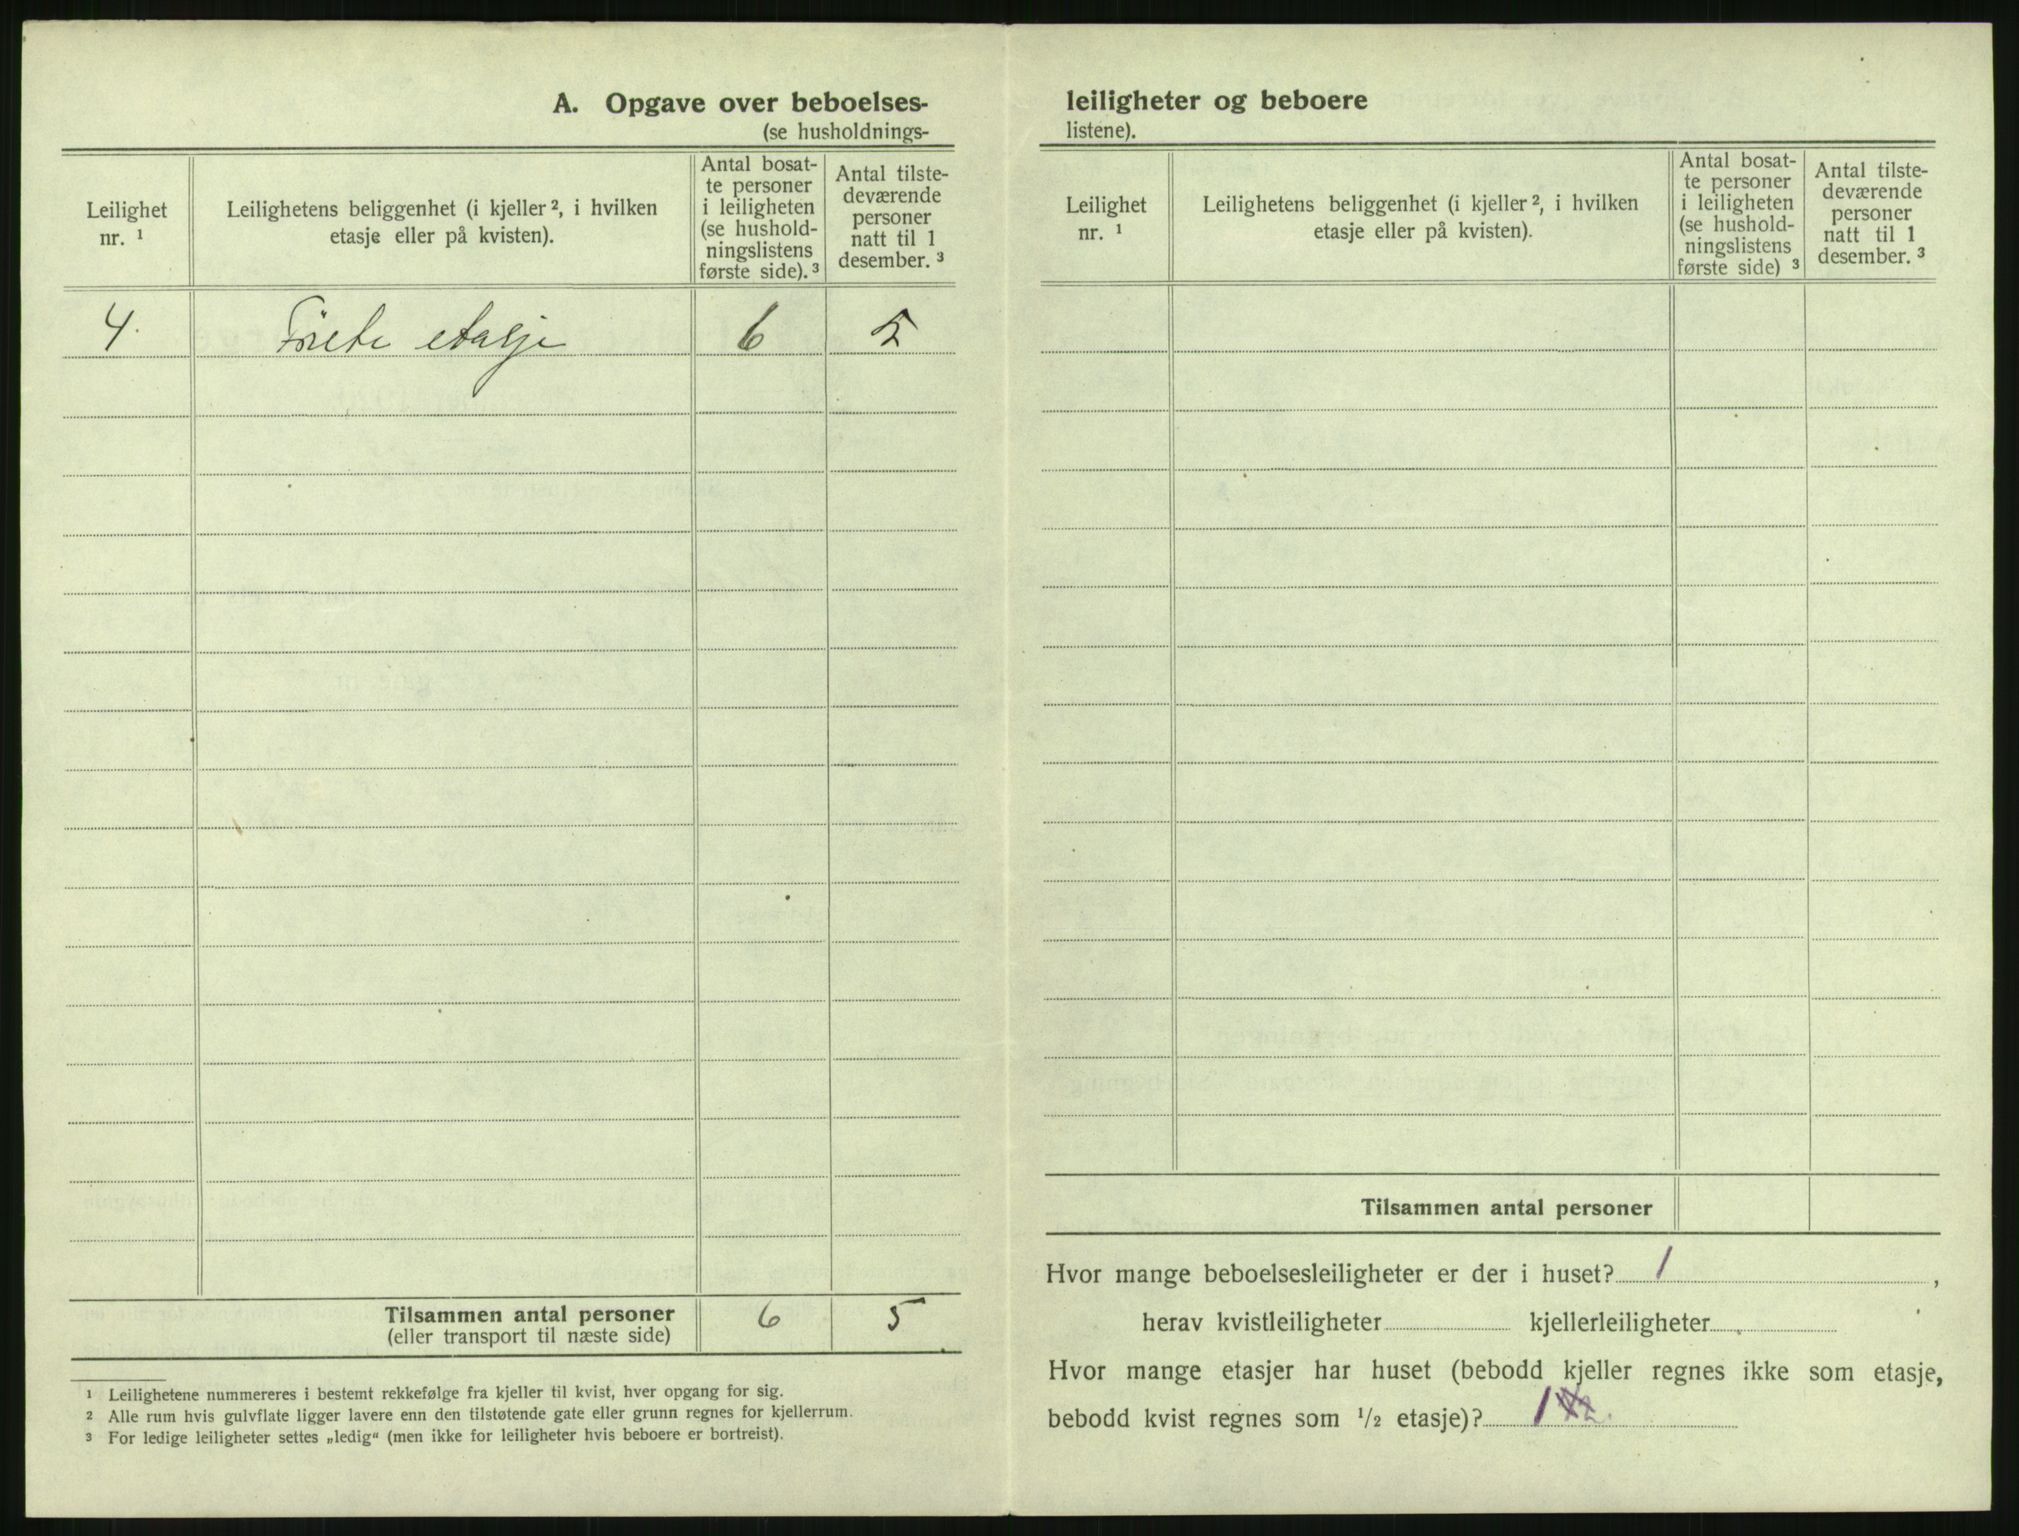 A. Opgave over beboelses-
(se husholdnings-
Leilighet
nr. ¹
Leilighetens beliggenhet (i kjeller ², i hvilken
etasje eller på kvisten).
Antal bosat-
te personer
i leiligheten
(se hushold-
ningslistens
første side). ³
Antal tilste-
deværende
personer
natt til 1
desember. ³
4. Förete etasje 6 5
Tilsammen antal personer 6 5
(eller transport til næste side)
¹ Leilighetene nummereres i bestemt rekkefølge fra kjeller til kvist, hver opgang for sig.
² Alle rum hvis gulvflate ligger lavere enn den tilstøtende gate eller grunn regnes for kjellerrum.
³ For ledige leiligheter settes „ledig“ (men ikke for leiligheter hvis beboere er bortreist).
leiligheter og beboere
listene).
Leilighet
nr. ¹
Leilighetens beliggenhet (i kjeller ², i hvilken
etasje eller på kvisten).
Antal bosat-
te personer
i leiligheten
(se hushold-
ningslistens
første side) ³
Antal tilste-
deværende
personer
natt til 1
desember. ³
Tilsammen antal personer
Hvor mange beboelsesleiligheter er der i huset? 1 ,
herav kvistleiligheter kjellerleiligheter
Hvor mange etasjer har huset (bebodd kjeller regnes ikke som etasje,
bebodd kvist regnes som ½ etasje)? 1